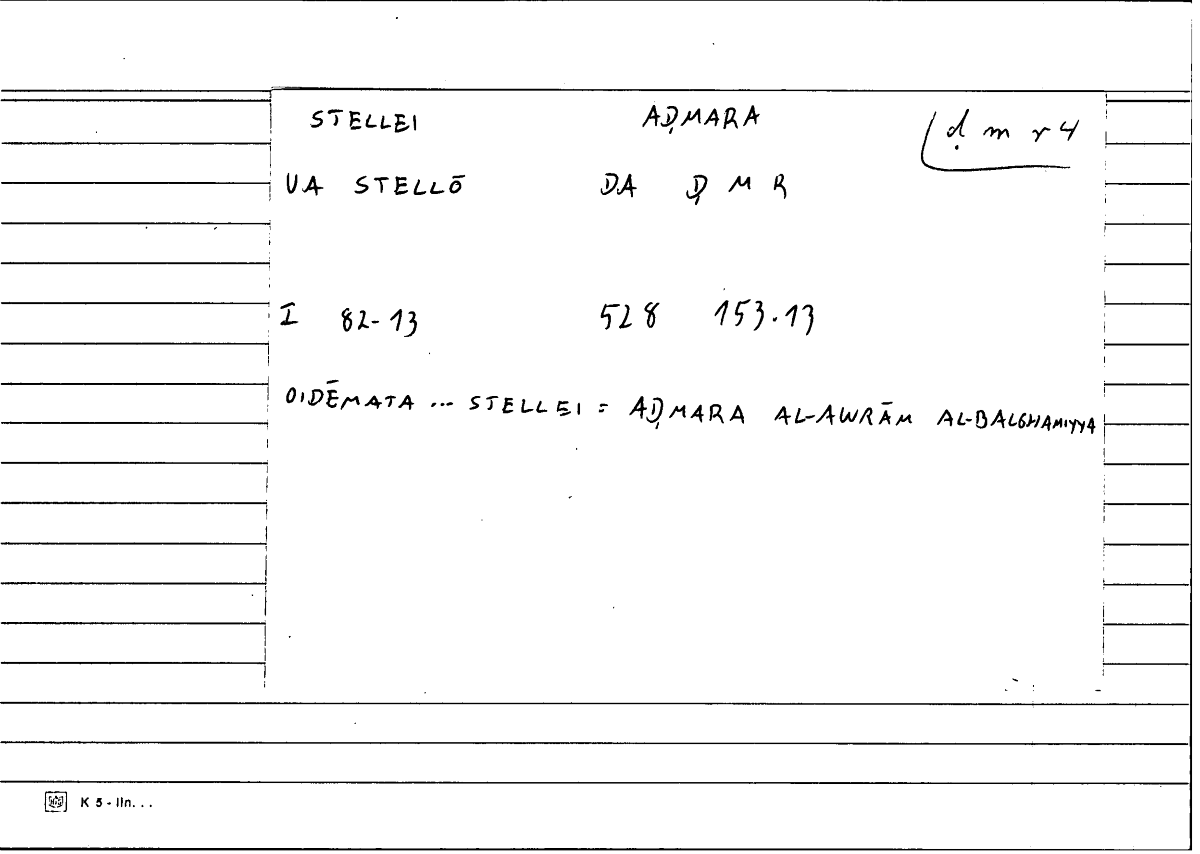 STELLEI AḌMARA ḍ m r 4
UA STELLŌ DA Ḍ M R
I 82-13 528 153.13
OIDĒMATA ... STELLEI = AḌMARA AL-AWRĀM AL-BALGHAMIYYA
K 5 - lln. . .